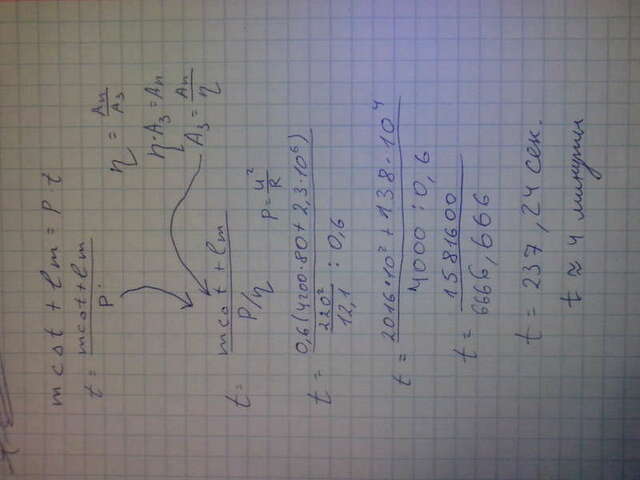 mcΔt + Lm = P·t
t = (mcΔt + Lm)/P
η = Aп/Aз
η·Aз = Aп
Aз = Aп/η
t = (mcΔt + Lm)/(P/η)
P = U²/R
t = 0,6(4200·80+2,3·10⁶)/(220²/12,1 : 0,6)
t = (2016·10² + 138·10⁴)/(4000 : 0,6)
t = 1581600/6666,666
t = 237,24 сек.
t ≈ 4 минуты